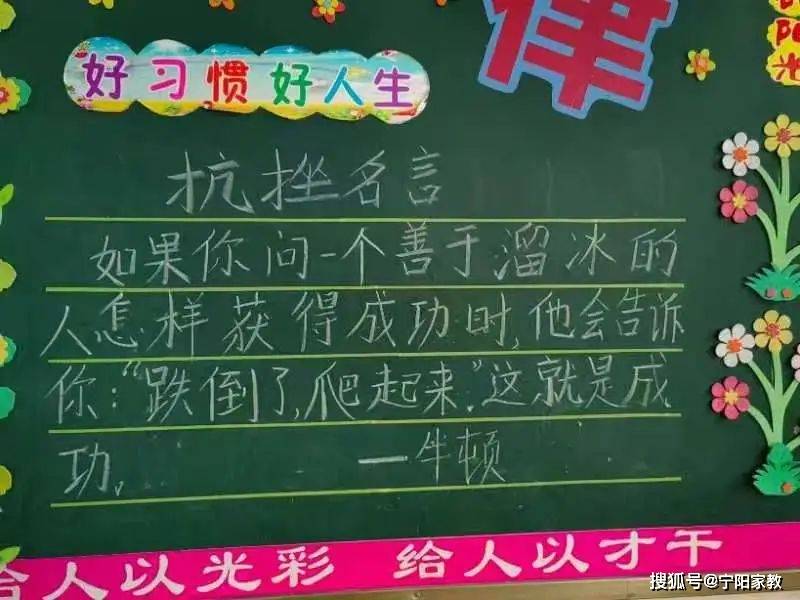 律
阳
光
好习惯好人生
抗挫名言
如果你问一个善于溜冰的
人怎样获得成功时,他会告诉
你:“跌倒了,爬起来。”这就是成
功。 —牛顿
给人以光彩 给人以才干
搜狐号@宁阳家教